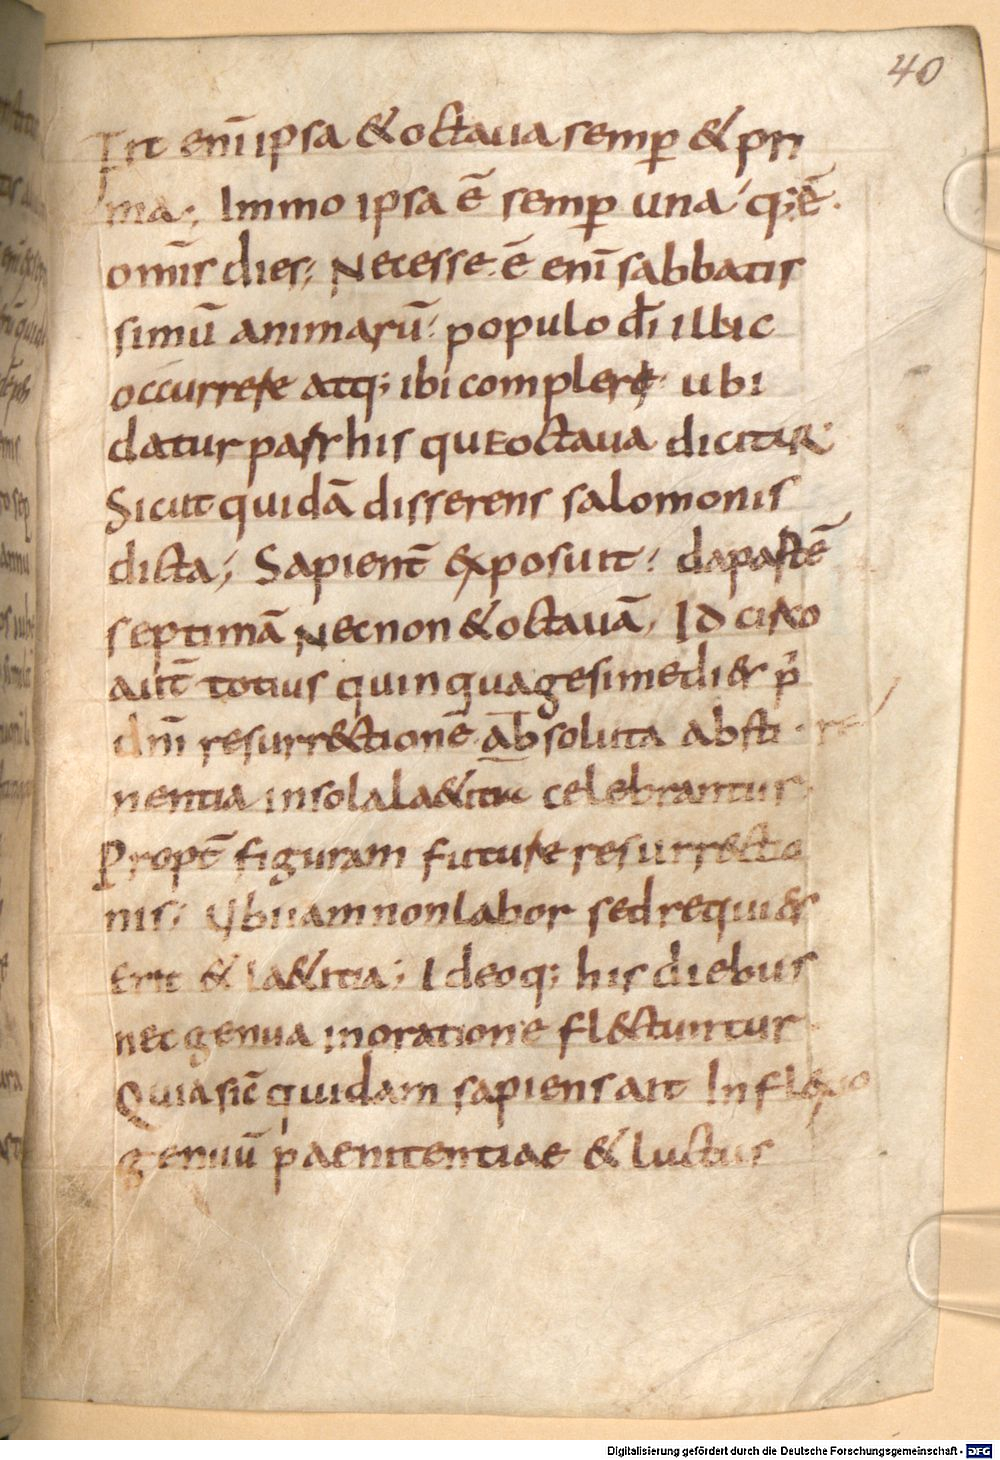 40
Erit enī ipsa & octaua semp & pri
ma; Immo ipsa ē semp una q;ē.
om̄is dies; Necesse ē enī sabbatis
simū animarū; populo dī illic
occurrere atq; ibi complere ubi
datur pars his que octaua dicitur
Sicut quidā disserens salomonis
dicta; Sapient̄ exposuit; da partē
septimā Necnon & octauā, Idcirco
aut̄ totius quinquagesime dies p̄
dn̄i resurr&ctionē absoluta absti
nentia in sola la&itia celebrantur
Propt̄ figuram future resurrectio
nis; Ubi iam non labor sed requies
Erit & la&itia; Ideoq; his diebus
nec genua in oratione fl&ctuntur
Quia sic̄ quidam sapiens ait Inflexio
genuū paenitentiae & luctus
Digitalisierung gefördert durch die Deutsche Forschungsgemeinschaft - DFG